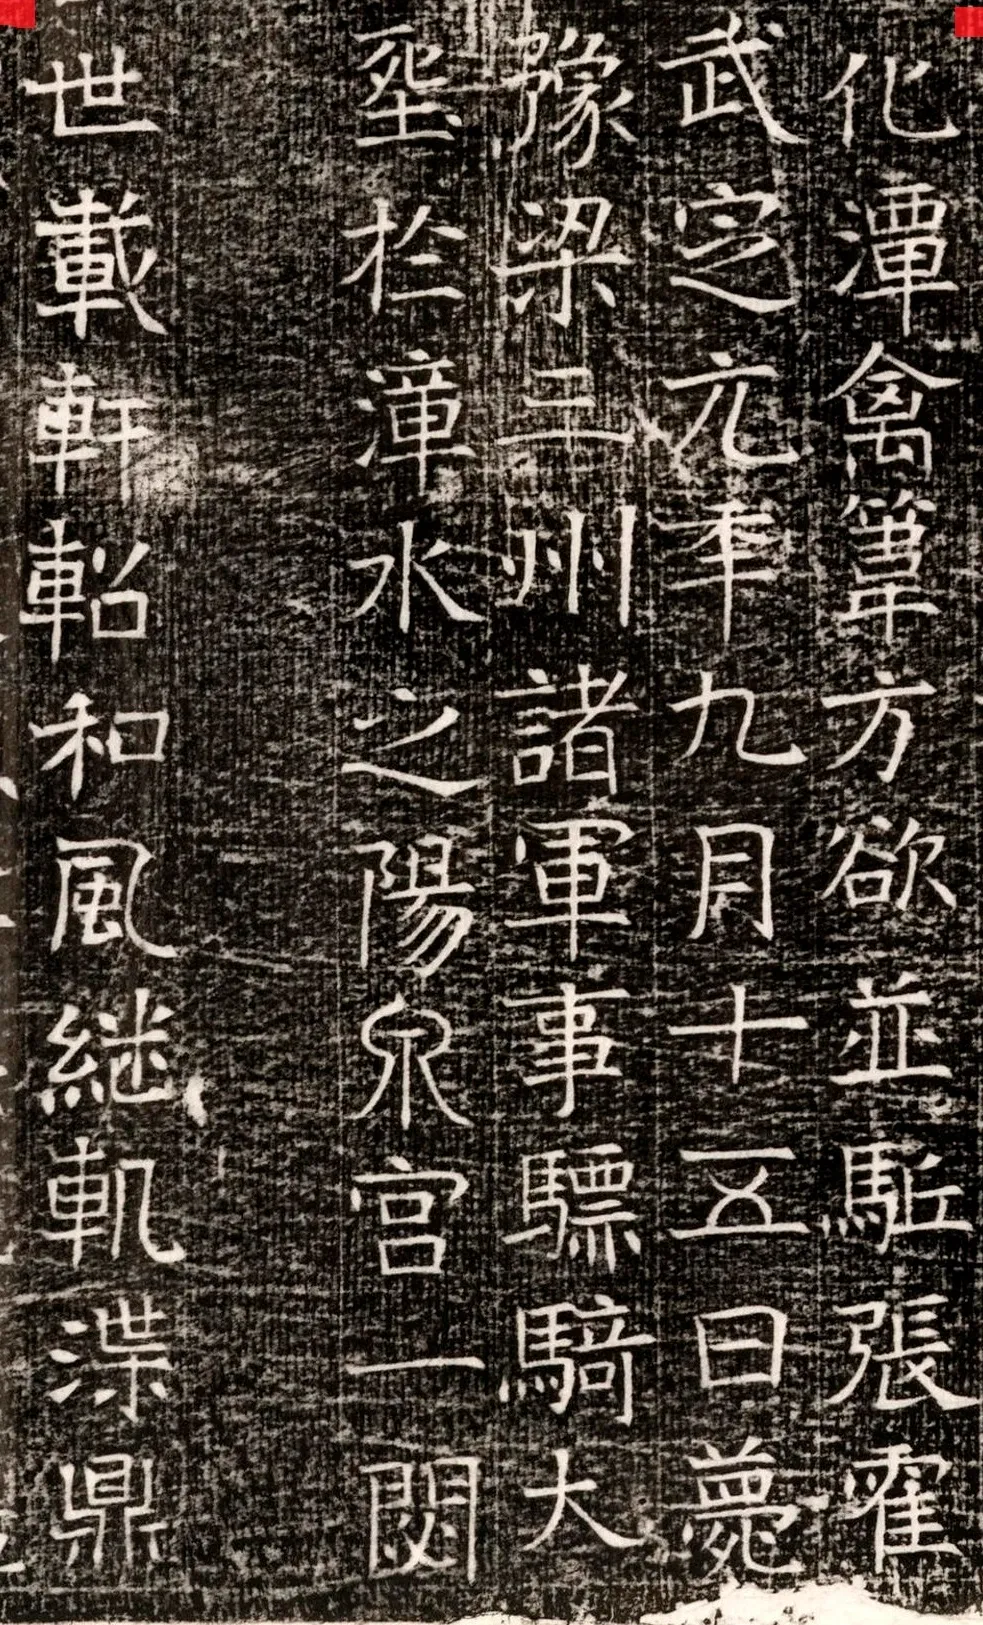 化潭禽葦方欲並駈張霍
武定元年九月十五日薨
豫梁二州諸軍事驃騎大
葬於漳水之陽泉宫一閟
世載軒軺和風継軌渫鼎